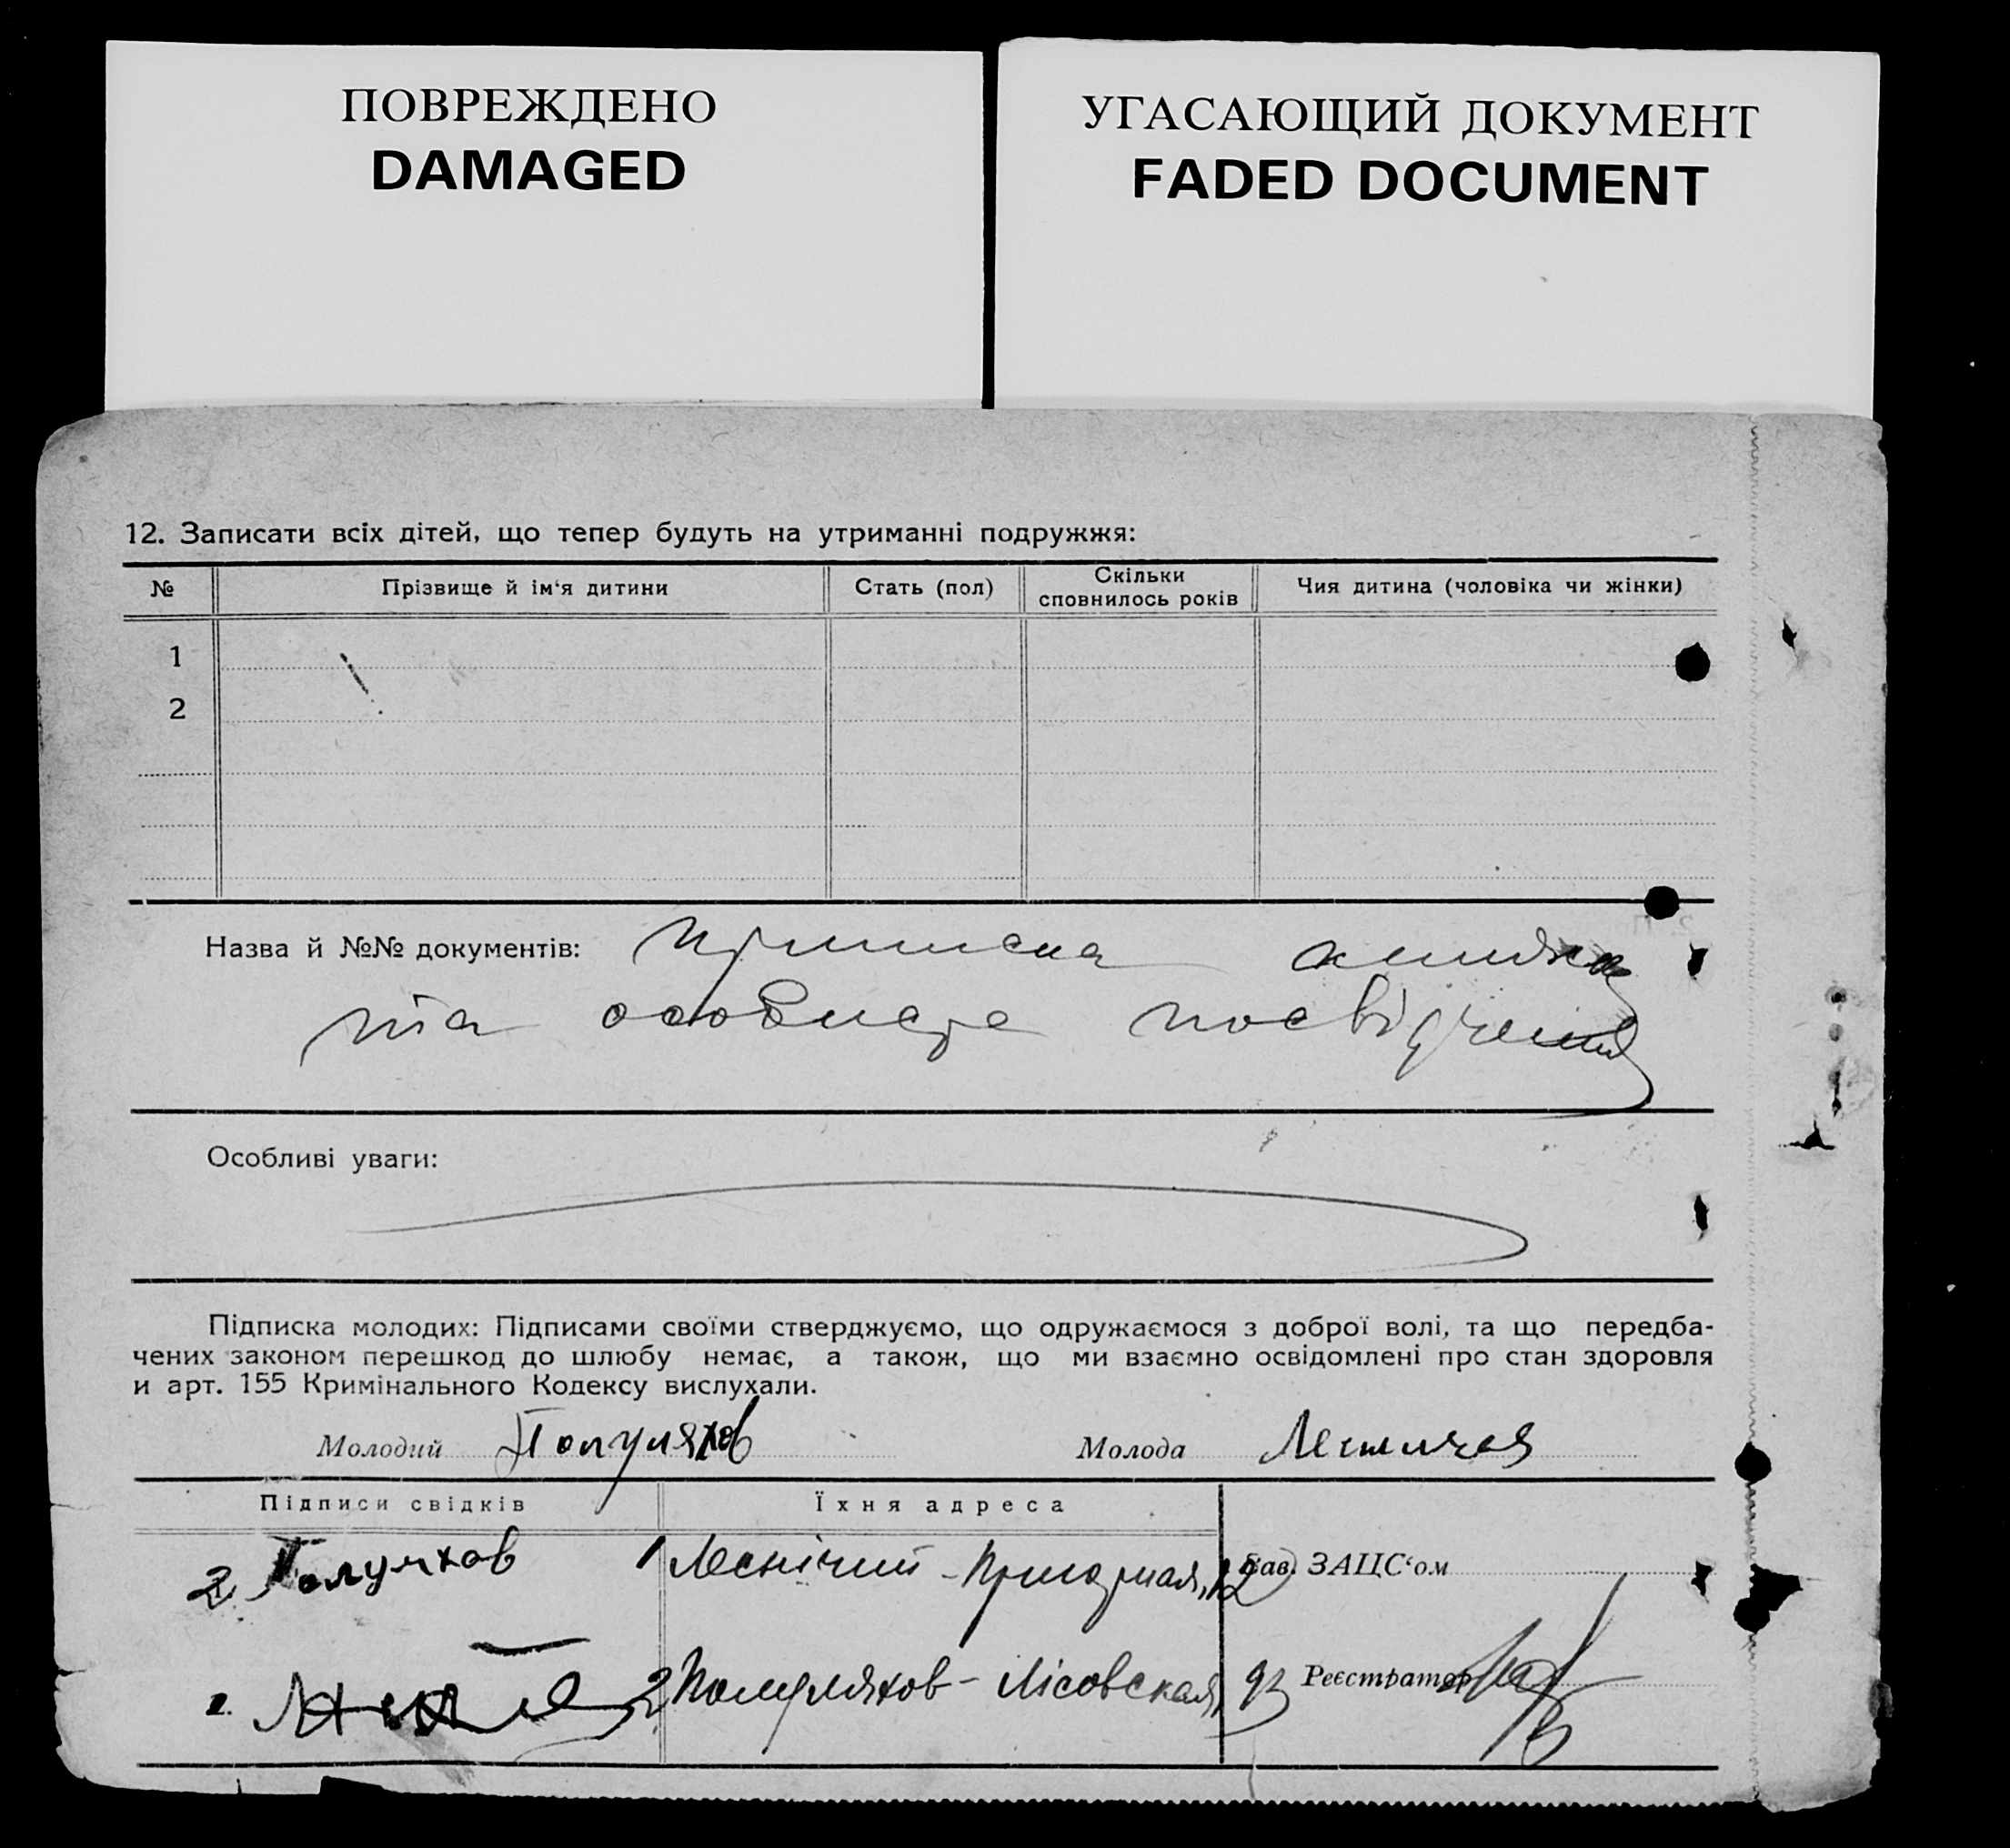 ПОВРЕЖДЕНО
DAMAGED
УГАСАЮЩИЙ ДОКУМЕНТ
FADED DOCUMENT
12. Записати всіх дітей, що тепер будуть на утриманні подружжя:
№ Прізвище й ім‘я дитини Стать (пол) Скільки сповнилось років Чия дитина (чоловіка чи жінки)
1
2
Назва й №№ документів: приписна книжка
та особисте посвідчення
Особливі уваги:
Підписка молодих: Підписами своїми стверджуємо, що одружаємося з доброї волі, та що передба-
чених законом перешкод до шлюбу немає, а також, що ми взаємно освідомлені про стан здоровля
и арт. 155 Кримінального Кодексу вислухали.
Молодий Полуляхов Молода
Підписи свідків Їхня адреса
2 Полуляхов 1 Леснічий - 12 Зав. ЗАЦС‘ом
2. 2 Полуляхов - Лісовская, 93 Реєстратор